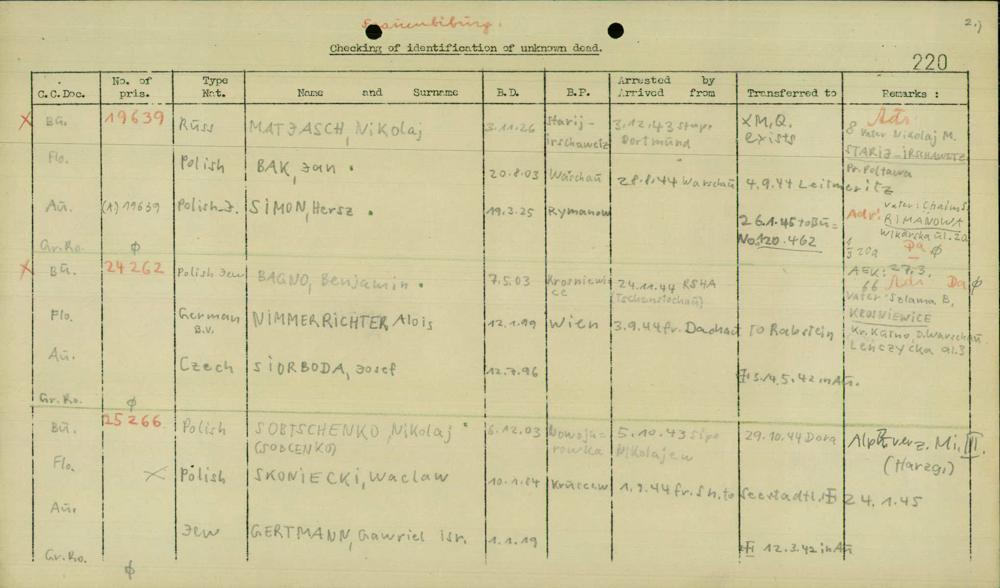 Frauenbiburg.
2.)
Checking of identification of unknown dead.
220
C.C.Doc. No. of pris. Type Nat. Name and Surname B.D. B.P. Arrested by Arrived from Transferred to Remarks :
X Bu. 19639 Russ MATJASCH, Nikolaj 3.11.26 Starij-Irschaweiz 3.12.43 Stapo Dortmund XM,Q. exists Adr:
8 Vater Nikolaj M.
STARIJ-IRSCHAWETZ
Pr. Poltawa
Flo. Polish BAK, Jan . 20.8.03 Waschau 28.8.44 Warschau 4.9.44 Leitmeritz
Au. (A) 19639 Polish-J. SIMON, Hersz . 19.3.25 Rymanow 26.1.45 to Bu= No. 120.462 Vater: Chaim S.
Adr: RIMANOWA
Wikarska ul. 20
Gr.Ro. ϕ
Da ϕ
X Bu. 24262 Polish Jew BAGNO, Benjamin . 7.5.03 Krosniewice 24.11.44 RSHA (Tschenstochau) AEK: 27.3.
66 Adr Da ϕ
Vater Szlama B,
KROSNIEWICE
Kr. Kutno, D. Warschau
Lenczycka ul.3
Flo. German B.V. NIMMERRICHTER Alois 12.1.99 Wien 3.9.44 fr. Dachau to Rabstein
Au. Czech SIORBODA, Josef 12.7.96 5.42 in Au.
Gr.Ro. ϕ
Bu. 25266 Polish SOBTSCHENKO, Nikolaj (SOBCENKO) 6.12.03 Nowoja=rowka 5.10.43 Sipo Nikolajew 29.10.44 Dora Alp. Verz. Mi. III. (Harzg.)
Flo. X Polish SKONIECKI, Waclaw 10.1.84 Kruscew 1.9.44 fr. Sh. to Seestadtl. 24.1.45
Au. Jew GERTMANN, Gawriel Isr. 1.1.19 12.3.42 in Au
Gr.Ro. ϕ